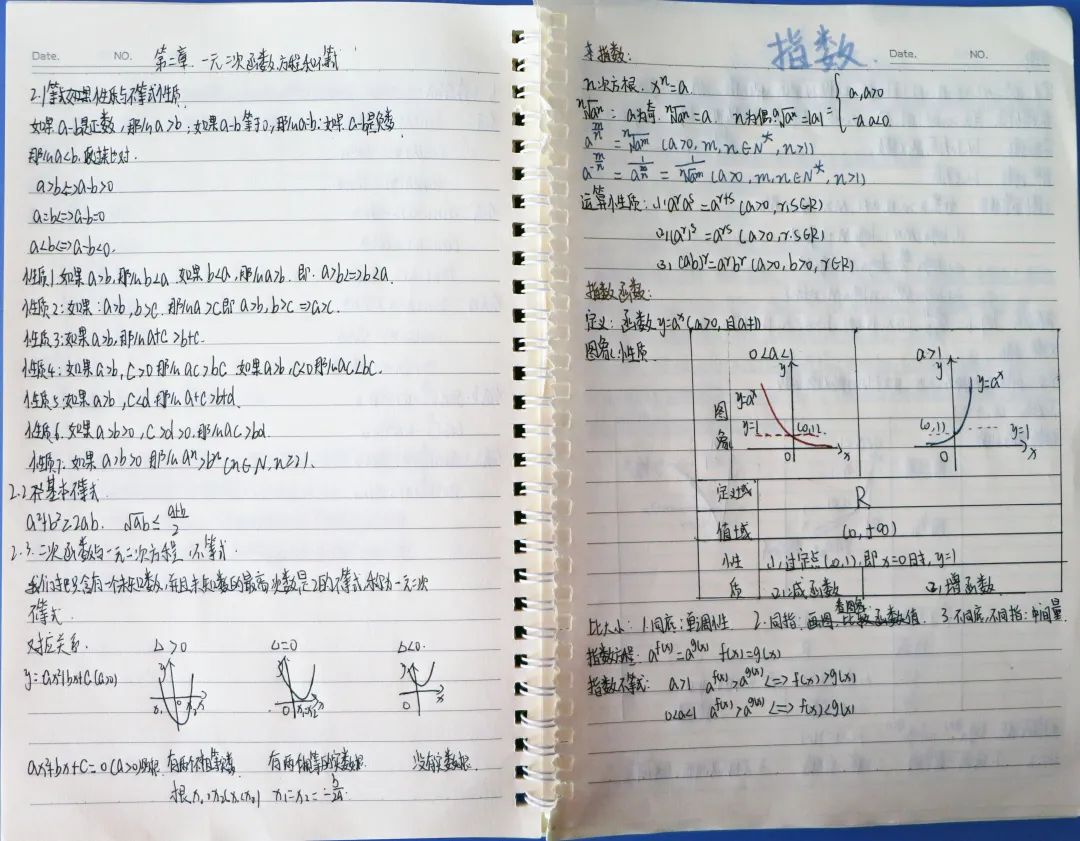 Date. NO.
第二章 一元二次函数、方程和不等式
2.1等式性质与不等式性质
如果a-b是正数,那么a>b;如果a-b等于0,那么a=b;如果a-b是负数
那么a<b.反过来也对.
a>b<=>a-b>0
a=b<=>a-b=0
a<b<=>a-b<0.
性质1.如果a>b,那么b<a.如果b<a,那么a>b.即.a>b<=>b<a.
性质2:如果:a>b,b>c.那么a>c即a>b,b>c=>a>c.
性质3:如果a>b,那么a+c>b+c.
性质4:如果a>b,c>0那么ac>bc 如果a>b,c<0那么ac<bc.
性质5:如果a>b,c<d那么a+c>b+d.
性质6.如果a>b>0,c>d>0.那么ac>bd.
性质7.如果a>b>0那么aⁿ>bⁿ(n∈N,n≥2).
2.2 基本不等式
a²+b²≥2ab. √ab≤(a+b)/2
2.3.二次函数与一元二次方程、不等式.
我们把只含有一个未知数,而且未知数的最高次数是2的不等式,称为一元二次
不等式.
对应关系. △>0 △=0 △<0.
y=ax²+bx+c(a>0)
y y y
x₁ 0 x₂ x 0 x₁=x₂ x 0 x
ax²+bx+c=0(a>0)的根 有两个不相等实数 有两个相等的实数根 没有实数根.
根x₁,x₂(x₁<x₂) x₁=x₂=-b/2a.
指数 Date. NO.
指数:
n次方根.xⁿ=a
ⁿ√aⁿ: n为奇.ⁿ√aⁿ=a. n为偶,ⁿ√aⁿ=|a|={a,a≥0
-a a<0
a^(m/n)=ⁿ√a^m (a>0,m,n∈N*,n>1)
a^(-m/n)=1/a^(m/n)=1/ⁿ√a^m (a>0,m,n∈N*,n>1)
运算性质:(1)a^r a^s=a^(r+s)(a>0,r.s∈R)
(2)(a^r)^s=a^(rs)(a>0,r.s∈R)
(3)(ab)^r=a^r b^r(a>0,b>0,r∈R)
指数函数:
定义:函数y=a^x(a>0,且a≠1)
图象、性质
0<a<1 a>1
图象
y y=a^x y=1 (0,1) 0 x
y y=a^x (0,1) y=1 0 x
定义域 R
值域 (0,+∞)
性质 (1)过定点(0,1),即x=0时,y=1
(2)减函数 (2)增函数
看图象
比大小:1.同底:单调性 2.同指:画图 比较函数值 3.不同底,不同指:中间量
指数方程:a^f(x)=a^g(x) f(x)=g(x)
指数不等式: a>1 a^f(x)>a^g(x)<=>f(x)>g(x)
0<a<1 a^f(x)>a^g(x)<=>f(x)<g(x)